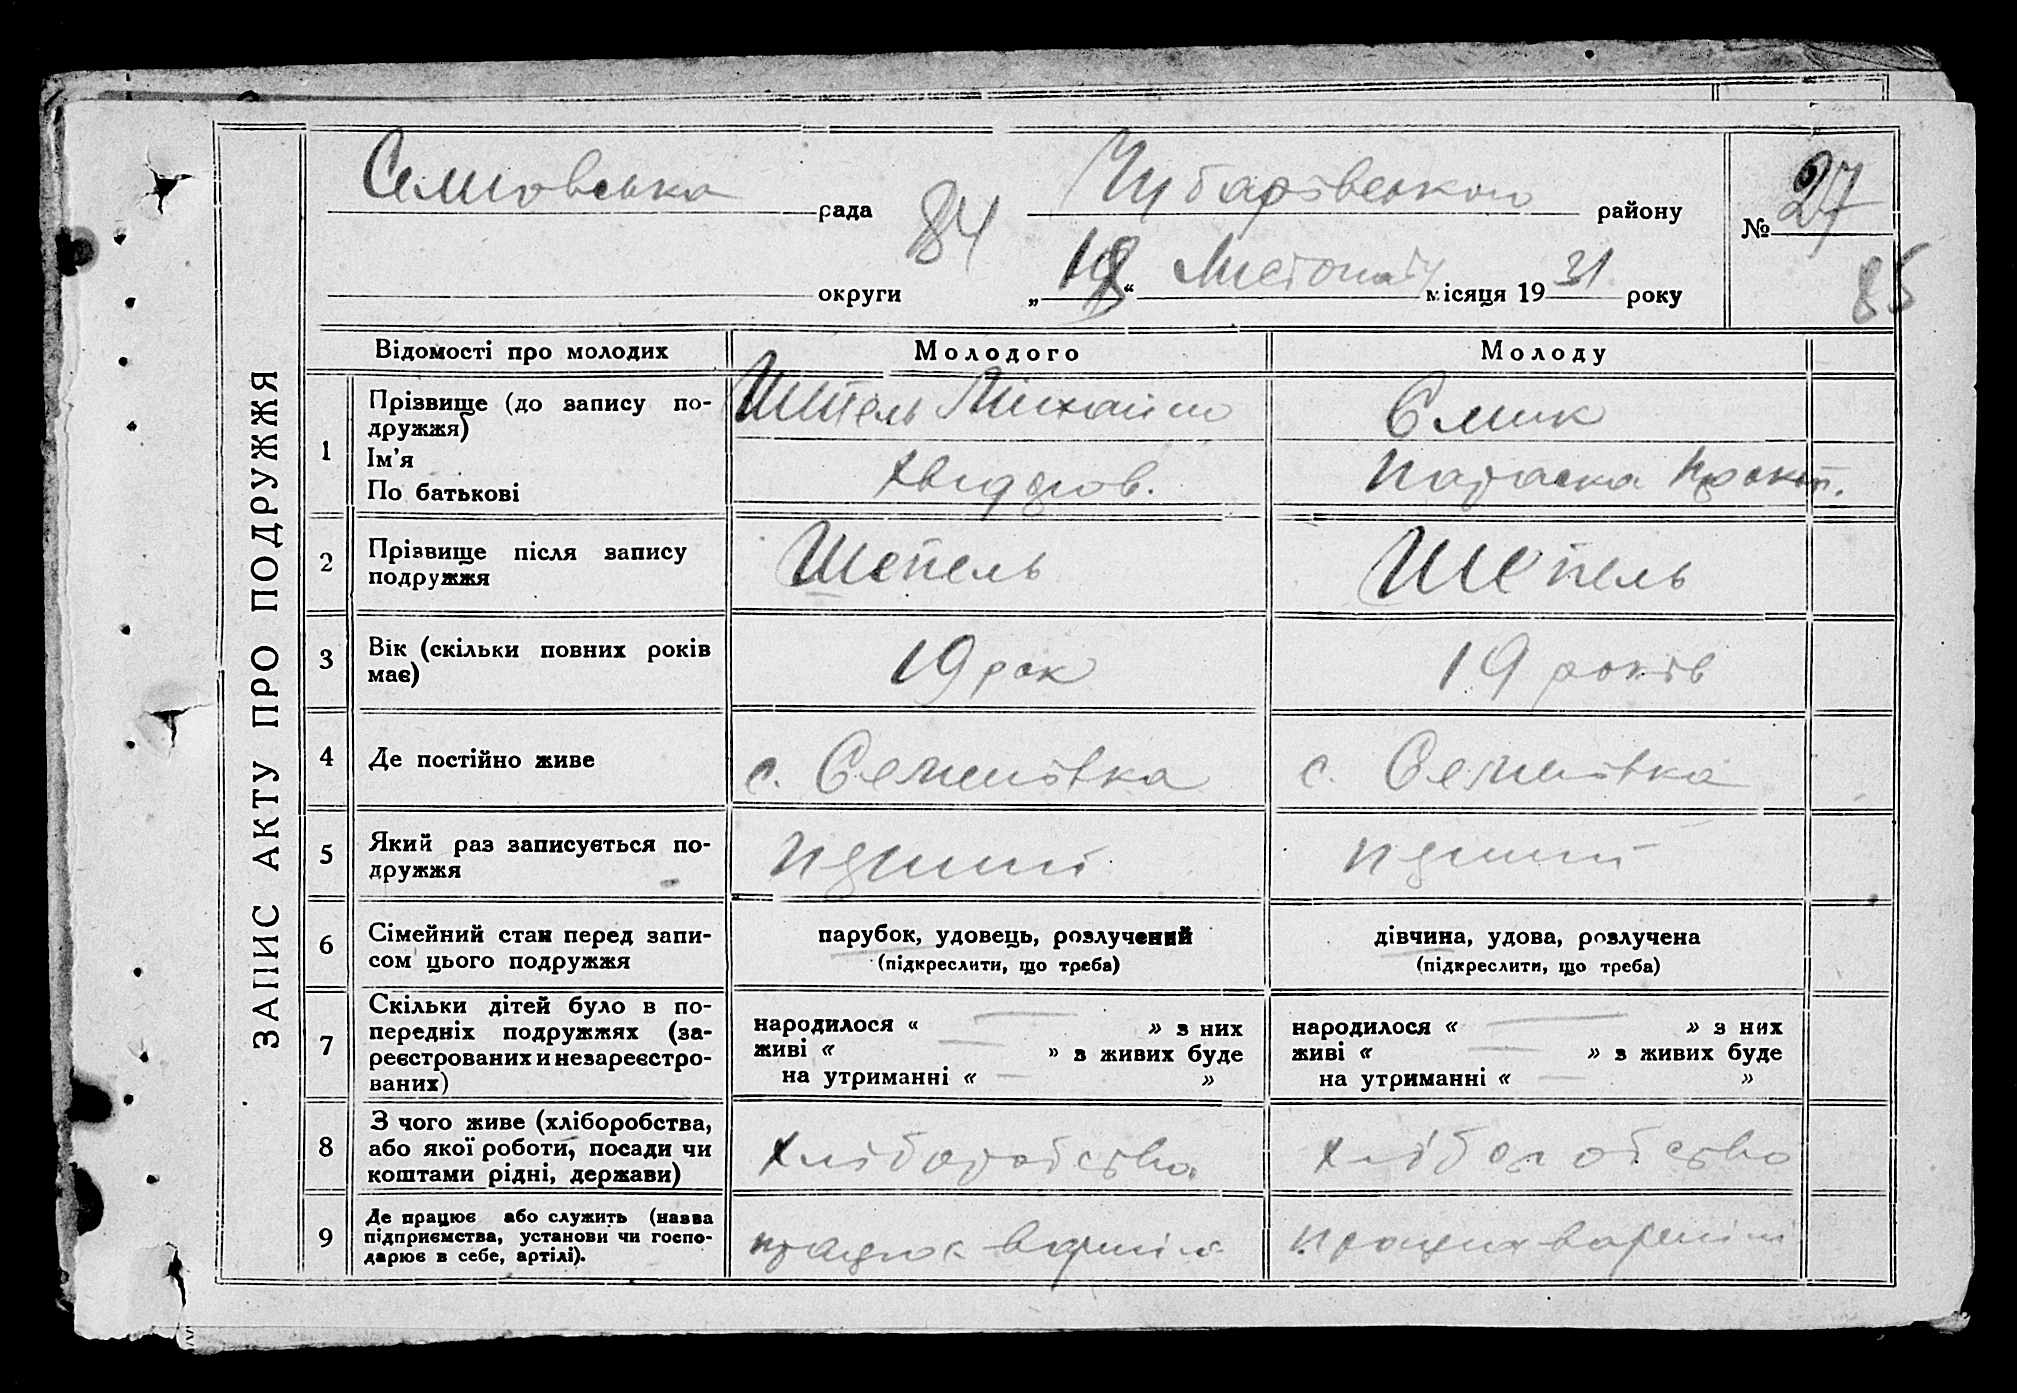 ЗАПИС АКТУ ПРО ПОДРУЖЖЯ
рада
84
Чубарівського району
№ 27
округи
„ “ Листопаду місяця 1931 року
85
Відомості про молодих
Молодого
Молоду
1
Прізвище (до запису по-
дружжя)
Ім'я
По батькові
Шпель Михайло
Хвидоров.
Смик
Параска
2
Прізвище після запису
подружжя
Шепель
Шепель
3
Вік (скільки повних років
має)
19 рок
19 років
4
Де постійно живе
с. Семенівка
с. Семенівка
5
Який раз записується по-
дружжя
6
Сімейний стан перед запи-
сом цього подружжя
парубок, удовець, розлучений
(підкреслити, що треба)
дівчина, удова, розлучена
(підкреслити, що треба)
7
Скільки дітей було в по-
передніх подружжях (за-
реєстрованих и незареєстро-
ваних)
народилося « — » з них
живі « — » з живих буде
на утриманні « — »
народилося « — » з них
живі « — » з живих буде
на утриманні « — »
8
З чого живе (хліборобства,
або якої роботи, посади чи
коштами рідні, держави)
хліборобства
хлібо робство
9
Де працює або служить (назва
підприємства, установи чи госпо-
дарює в себе, артілі).
працює в артілі
працює в артілі